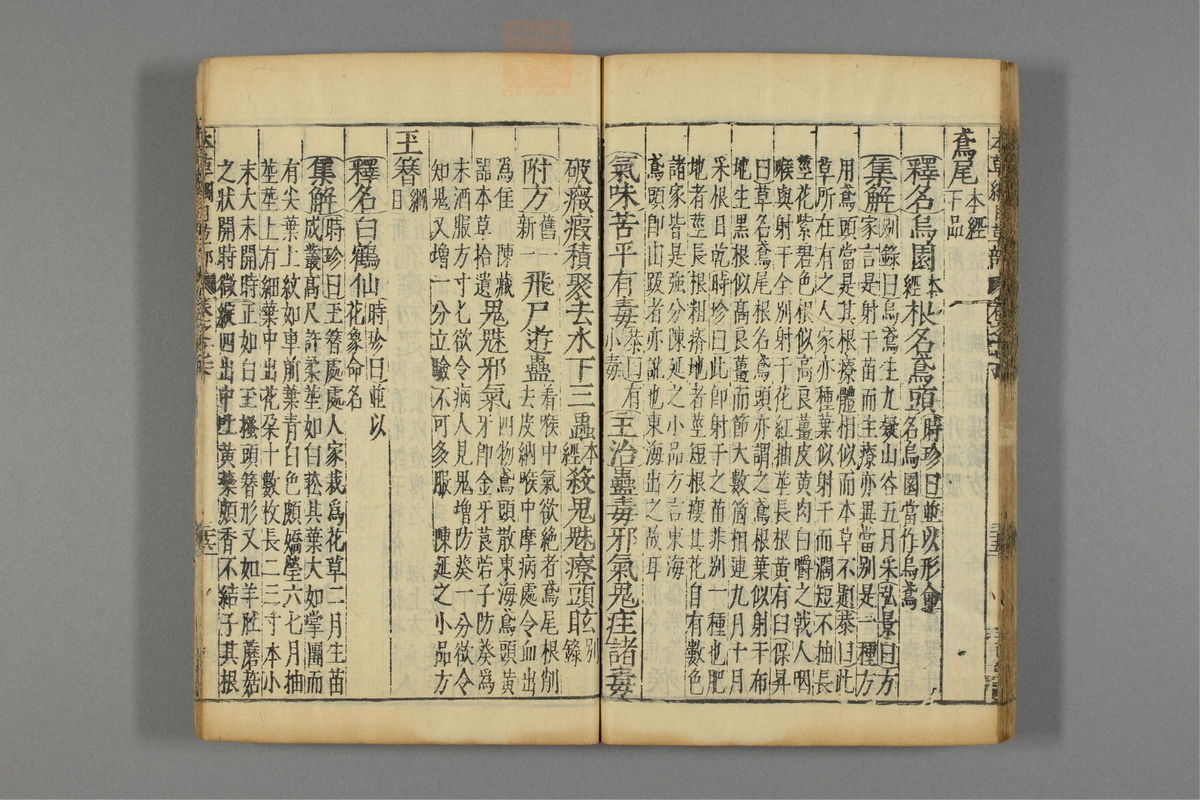 鳶尾本經下品
釋名烏園本經根名鳶頭時珍曰並以形命名烏園當作烏鳶
集解別錄曰烏鳶生九疑山谷五月采弘景曰方
家言是射干苗而主療亦異當別是一種方
用鳶頭當是其根療體相似而本草不題恭曰此
草所在有之人家亦種葉似射干而濶短不抽長
莖花紫碧色根似高良薑皮黃肉白嚼之戟人咽
喉與射干全別射干花紅抽莖長根黃有臼保昇
曰草名鳶尾根名鳶頭亦謂之鳶根葉似射干布
地生黑根似高良薑而節大數箇相連九月十月
采根日乾時珍曰此即射干之苗非別一種也肥
地者莖長根粗瘠地者莖短根瘦其花自有數色
諸家皆是強分陳延之小品方言東海
鳶頭即由跋者亦訛也東海出之故耳
氣味苦平有毒恭曰有小毒主治蠱毒邪氣鬼疰諸毒
破癥瘕積聚去水下三蟲本經殺鬼魅療頭眩別錄
附方舊一新一飛尸遊蠱着喉中氣欲絶者鳶尾根削去皮納喉中摩病處令血出
為佳陳藏器本草拾遺鬼魅邪氣四物鳶頭散東海鳶頭黃牙即金牙莨菪子防葵為
末酒服方寸匕欲令病人見鬼增防葵一分欲令
知鬼又增一分立驗不可多服陳延之小品方
玉簪綱目
釋名白鶴仙時珍曰並以花象命名
集解時珍曰玉簪處處人家栽為花草二月生苗
成叢高尺許柔莖如白菘其葉大如掌團而
有尖葉上紋如車前葉青白色頗嬌瑩六七月抽
莖莖上有細葉中出花朵十數枚長二三寸本小
末大未開時正如白玉搔頭簪形又如羊肚蘑菇
之狀開時微綻四出中吐黃蕊頗香不結子其根